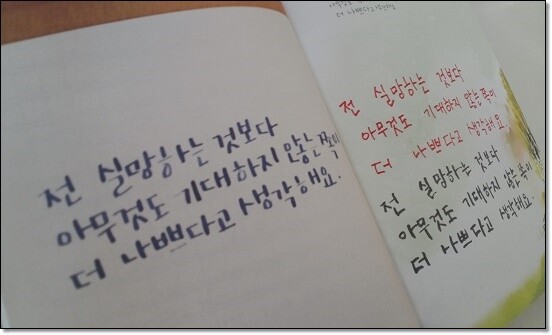 전 실망하는 것보다
아무것도 기대하지 않는 쪽이
더 나쁘다고 생각해요.
더 나쁘다고 생각해요
전 실망하는 것보다
아무것도 기대하지 않는 쪽이
더 나쁘다고 생각해요.
전 실망하는 것보다
아무것도 기대하지 않는 쪽이
더 나쁘다고 생각해요.